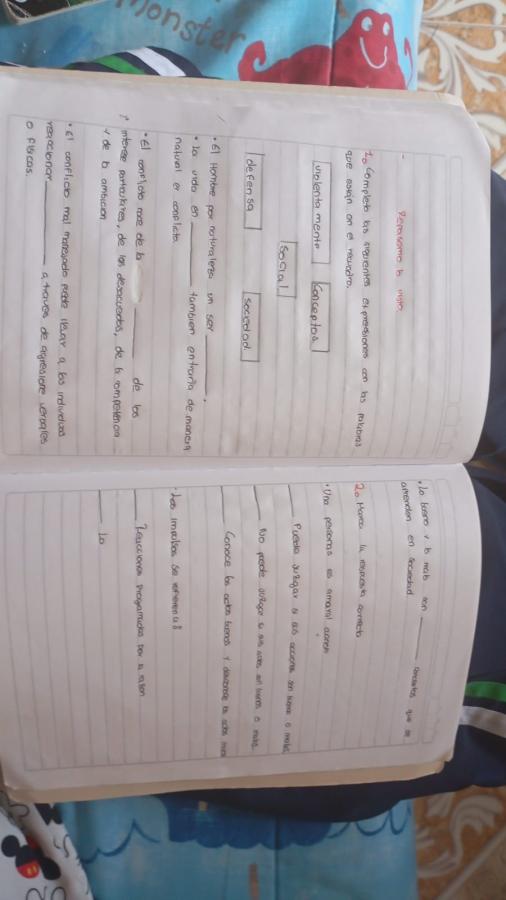 Repasemos lo visto
1o Completo las siguientes expresiones con las palabras
que están en el recuadro.
violentamente
Conceptos
Social
defensa
sociedad
• El Hombre por naturaleza un ser ______.
• La vida en ______ tambien entraña de manera
natural el conflicto
• El conflicto nace de la ______ de los
interese particulares, de los desacuerdos, de la competencia
y de la ambicion
• El conflicto mal manejado puede llevar a los individuos
reaccionar ______ a traves de agresione verbales
o fisicas.
• Lo bueno y lo malo son ______ conceptos que se
aprenden en sociedad
2o Marca la respuesta correcta
• Una personas es amoral cuando
___ Puede juzgar si sus acciones son buenas o malas,
___ No puede juzgar si sus actos son buenos o malos.
___ Conoce los actos buenos y desconoce los actos malos
• Los impulsos se refieren a:
___ Reacciones Programadas por la razon
___ La
monster